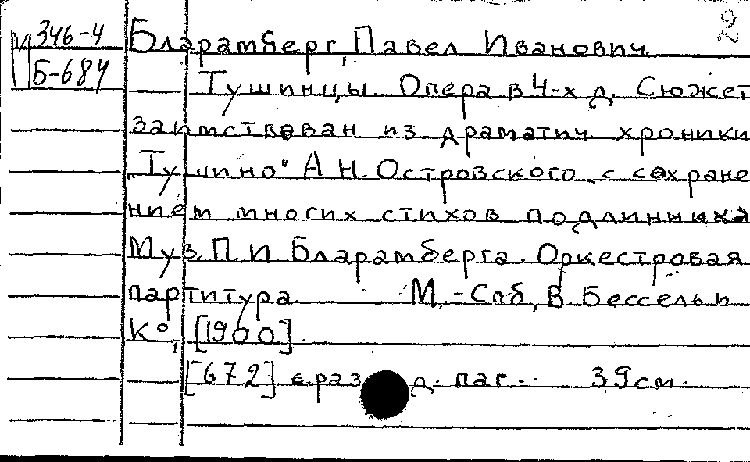 2
М 346-4
Б-684
Бларамберг, Павел Иванович
Тушинцы. Опера в 4-х д. Сюжет
заимствован из драматич. хроники
„Тушино" А. Н. Островского, с сохране
нием многих стихов подлинника
Муз. П. И. Бларамберга. Оркестровая
партитура. М.-Спб, В. Бессель и
К°, [1900].
[672] с. разд. паг. 39 см.